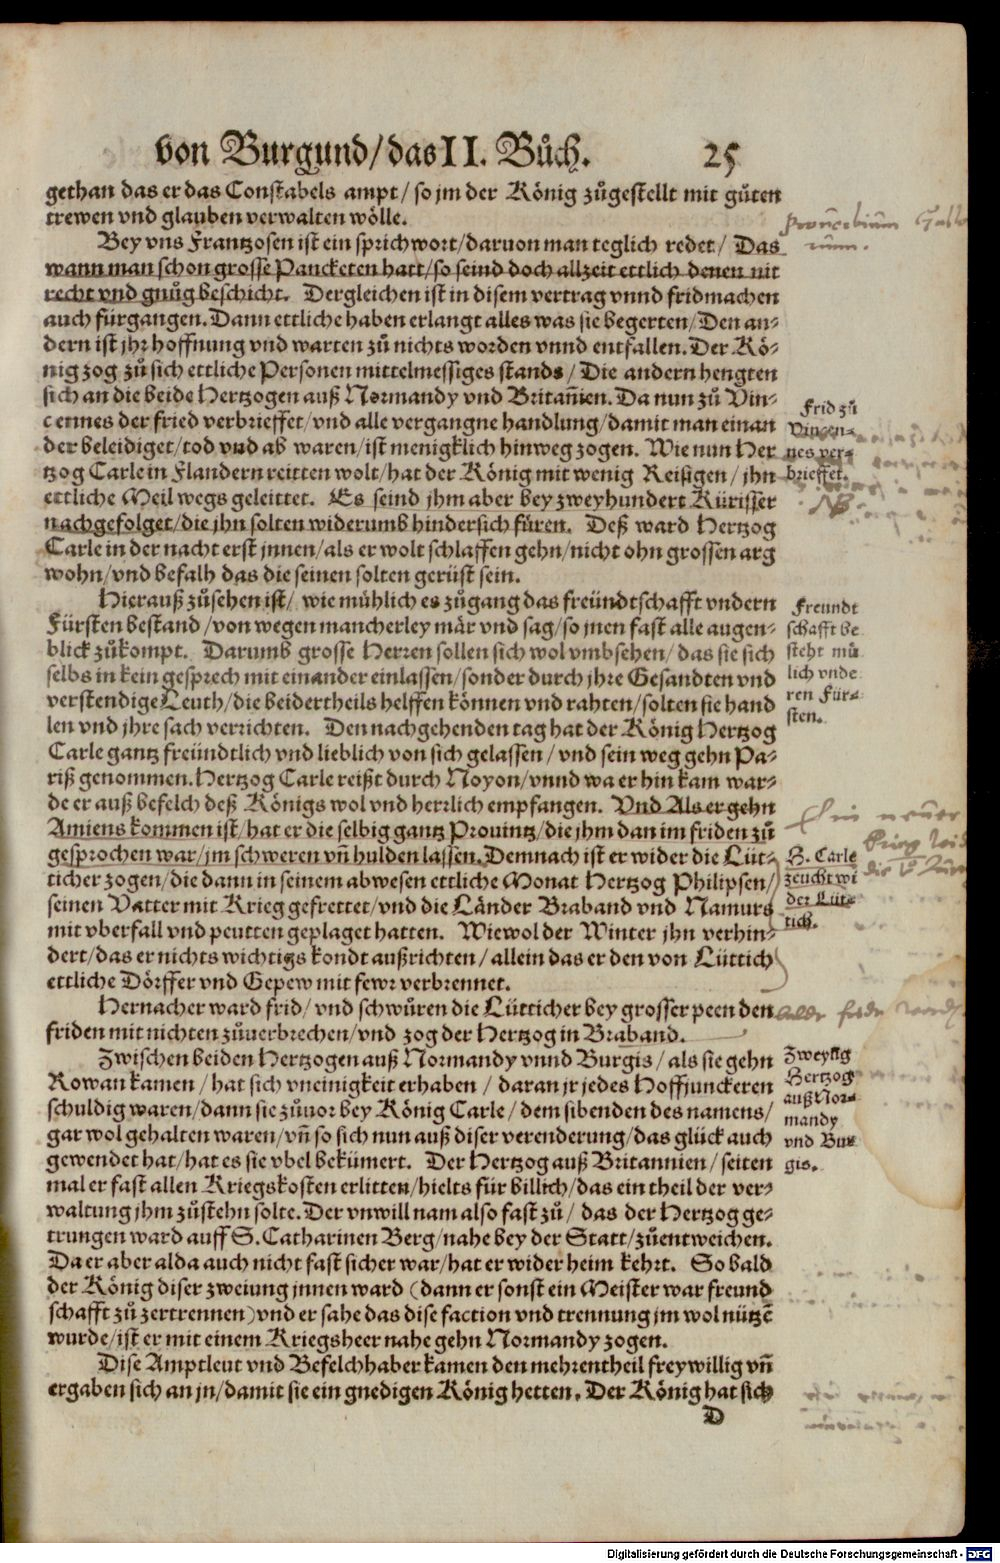 von Burgund/das II. Bůch. 25
gethan das er das Constabels ampt/so jm der König zůgestellt mit gůten
trewen vnd glauben verwalten wölle.
Bey vns Frantzosen ist ein sprichwort/daruon man teglich redet/ Das
wann man schon grosse Pancketen hatt/so seind doch allzeit ettlich denen nit
recht vnd gnůg beschicht. Dergleichen ist in disem vertrag vnnd fridmachen
auch fürgangen. Dann ettliche haben erlangt alles was sie begerten/Den an-
dern ist jhr hoffnung vnd warten zů nichts worden vnnd entfallen. Der Kö-
nig zog zů sich ettliche Personen mittelmessiges stands/ Die andern hengten
sich an die beide Hertzogen auß Normandy vnd Britañien. Da nun zů Vin-
cennes der fried verbrieffet/vnd alle vergangne handlung/damit man einan
der beleidiget/tod vnd ab waren/ist menigklich hinweg zogen. Wie nun Her
tzog Carle in Flandern reitten wolt/hat der König mit wenig Reisigen/jhn
ettliche Meil wegs geleittet. Es seind jhm aber bey zweyhundert Kürisser
nachgefolget/die jhn solten widerumb hindersich füren. Deß ward Hertzog
Carle in der nacht erst jnnen/als er wolt schlaffen gehn/nicht ohn grossen arg
wohn/vnd befalh das die seinen solten gerüst sein.
Hierauß zůsehen ist/ wie mühlich es zůgang das freündtschafft vndern
Fürsten bestand/von wegen mancherley mär vnd sag/so jnen fast alle augen-
blick zůkompt. Darumb grosse Herren sollen sich wol vmbsehen/das sie sich
selbs in kein gesprech mit einander einlassen/sonder durch jhre Gesandten vnd
verstendige Leuth/die beidertheils helffen können vnd rahten/solten sie hand
len vnd jhre sach verrichten. Den nachgehenden tag hat der König Hertzog
Carle gantz freündtlich vnd lieblich von sich gelassen/ vnd sein weg gehn Pa-
riß genommen. Hertzog Carle reißt durch Noyon/vnnd wa er hin kam war-
de er auß befelch deß Königs wol vnd herrlich empfangen. Vnd Als er gehn
Amiens kommen ist/hat er die selbig gantz Prouintz/die jhm dan im friden zů
gesprochen war/jm schweren vñ hulden lassen. Demnach ist er wider die Lüt-
ticher zogen/die dann in seinem abwesen ettliche Monat Hertzog Philipsen/
seinen Vatter mit Krieg gefrettet/vnd die Länder Braband vnd Namurs
mit vberfall vnd peutten geplaget hatten. Wiewol der Winter jhn verhin-
dert/das er nichts wichtigs kondt außrichten/allein das er den von Lüttich
ettliche Dörffer vnd Gepew mit fewr verbrennet.
Hernacher ward frid/ vnd schwůren die Lütticher bey grosser peen den
friden mit nichten zůuerbrechen/vnd zog der Hertzog in Braband.
Zwischen beiden Hertzogen auß Normandy vnnd Burgis/als sie gehn
Rowan kamen/hat sich vneinigkeit erhaben/ daran jr jedes Hoffjunckeren
schuldig waren/dann sie zůuor bey König Carle/dem sibenden des namens/
gar wol gehalten waren/vñ so sich nun auß diser verenderung/das glück auch
gewendet hat/hat es sie vbel bekümert. Der Hertzog auß Britannien/seiten
mal er fast allen Kriegskosten erlitten/hielts für billich/das ein theil der ver-
waltung jhm zůstehn solte. Der vnwill nam also fast zů/ das der Hertzog ge-
trungen ward auff S. Catharinen Berg/nahe bey der Statt/zůentweichen.
Da er aber alda auch nicht fast sicher war/hat er wider heim kehrt. So bald
der König diser zweiung jnnen ward (dann er sonst ein Meister war freund
schafft zů zertrennen) vnd er sahe das dise faction vnd trennung jm wol nützẽ
wurde/ist er mit einem Kriegsheer nahe gehn Normandy zogen.
Dise Amptleut vnd Befelchhaber kamen den mehrentheil freywillig vñ
ergaben sich an jn/damit sie ein gnedigen König hetten. Der König hat sich
D
Frid zů
Vincen-
nes ver-
brieffet.
NB
Freundt
schafft be
steht mů
lich vnde
ren Für-
sten.
H. Carle
zeucht wi
der Lüt-
tich.
Zweyllg
Hertzog
auß Nor-
mandy
vnd Bur
gis.
Digitalisierung gefördert durch die Deutsche Forschungsgemeinschaft - DFG